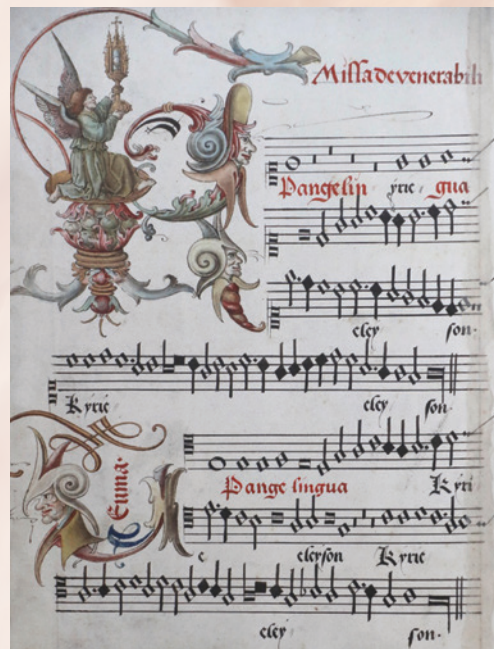 Missa de venerabili
Pange lin yrie gua
eley son.
Kyrie eley son.
Pange lingua Kyri
e eleyson Kyrie
eley son.